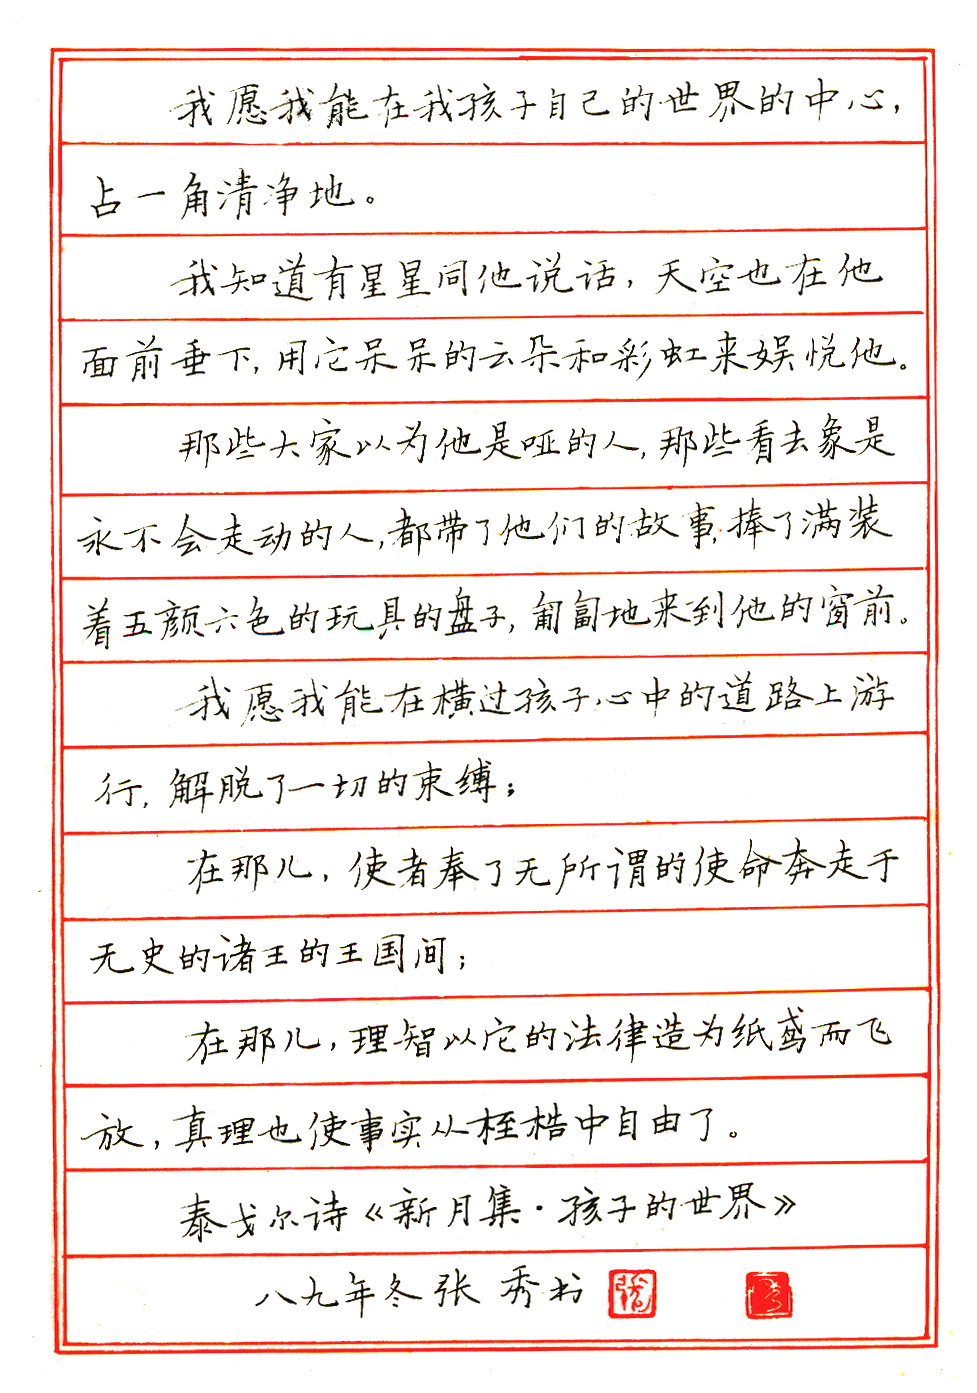 我愿我能在我孩子自己的世界的中心，
占一角清净地。
我知道有星星同他说话，天空也在他
面前垂下，用它呆呆的云朵和彩虹来娱悦他。
那些大家以为他是哑的人，那些看去象是
永不会走动的人，都带了他们的故事，捧了满装
着五颜六色的玩具的盘子，匍匐地来到他的窗前。
我愿我能在横过孩子心中的道路上游
行，解脱了一切的束缚；
在那儿，使者奉了无所谓的使命奔走于
无史的诸王的王国间；
在那儿，理智以它的法律造为纸鸢而飞
放，真理也使事实从桎梏中自由了。
泰戈尔诗《新月集·孩子的世界》
八九年冬张秀书